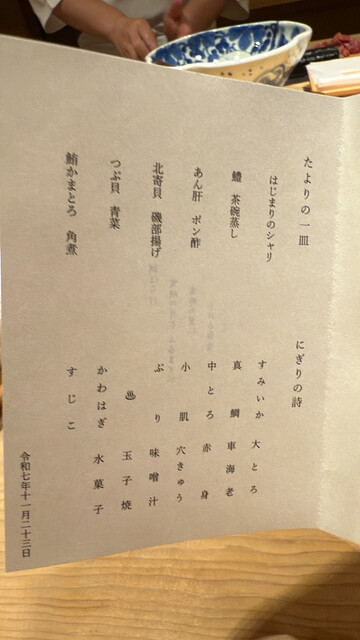 たよりの一皿
はじまりのシャリ
鱧 茶碗蒸し
あん肝 ポン酢
北寄貝 磯部揚げ
つぶ貝 青菜
鮪かまとろ 角煮
にぎりの詩
すみいか 大とろ
真鯛 車海老
中とろ 赤身
小肌 穴きゅう
ぶり 味噌汁
♨ 玉子焼
かわはぎ 水菓子
すじこ
令和七年十一月二十三日